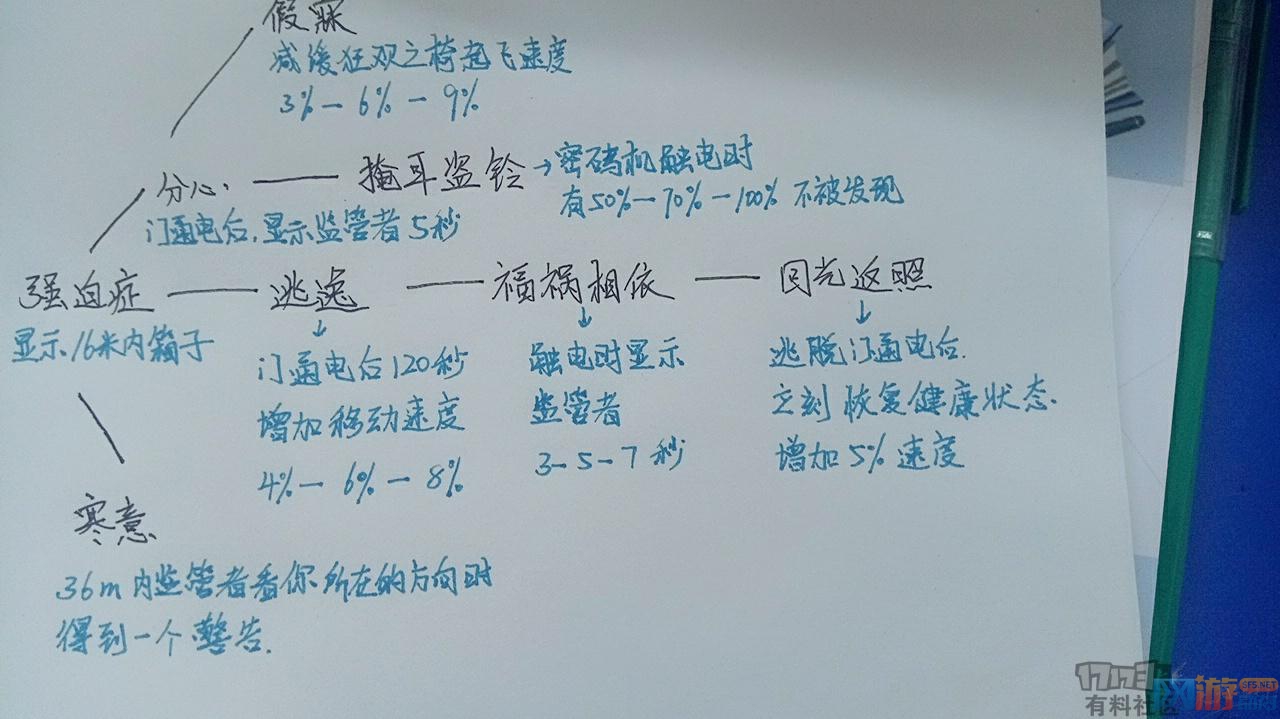 假寐
减缓狂欢之椅起飞速度
3%—6%—9%
分心. —— 掩耳盗铃→密码机触电时
有50%—70%—100%不被发现
门通电后,显示监管者5秒
强迫症 —— 逃逸 —— 福祸相依 —— 回光返照
显示16米内箱子
门通电后120秒
增加移动速度
4%—6%—8%
触电时显示
监管者
3-5-7秒
逃脱门通电后.
立刻恢复健康状态.
增加5%速度
寒意
36m内监管者看你所在的方向时
得到一个警告.
17173
有料社区
网游
GFS.NET